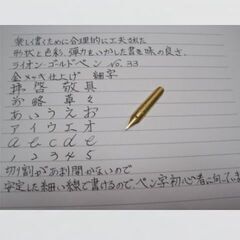 楽しく書くために合理的に工夫された
形状と色彩、弾力をいかした書き味の良さ。
ライオン ゴルドペン No.33
金メッキ仕上げ 細字
拝啓 敬具
前略 草々
あいうえお
アイウエオ
a b c d e
1 2 3 4 5
切り割があまり開かないので
安定した細い線で書けるので、ペン字初心者に向いています